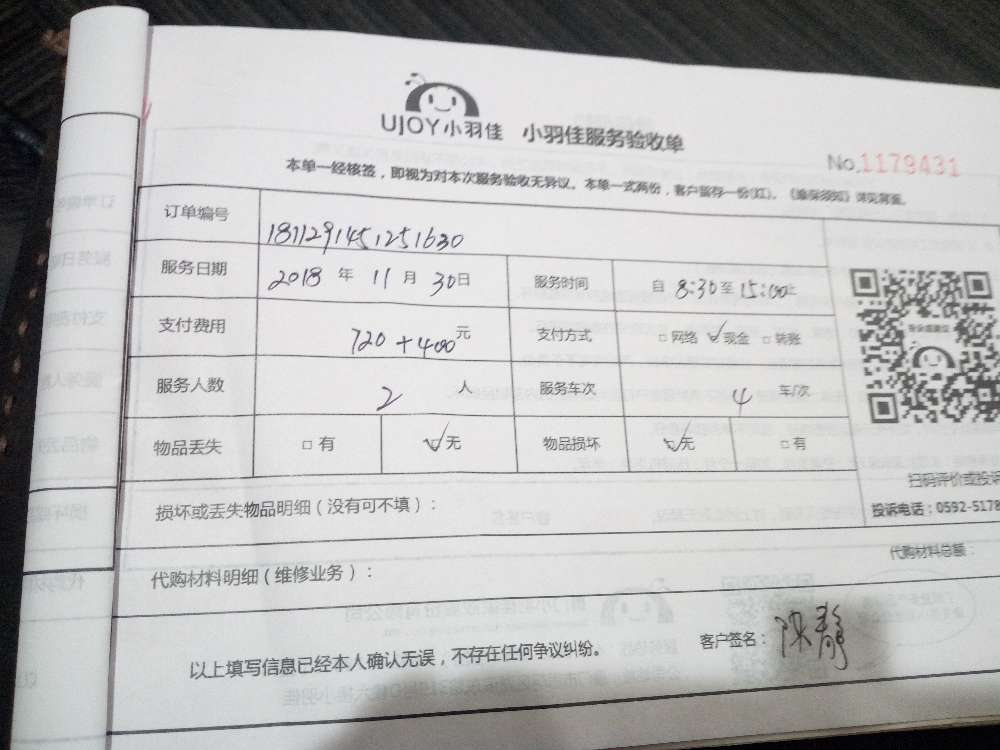 UJOY小羽佳 小羽佳服务验收单
No.1179431
本单一经核签，即视为对本次服务验收无异议。本单一式两份，客户留存一份(红)。《维保须知》详见背面。
订单编号 1811291451251630
服务日期 2018 年 11 月 30 日 服务时间 自 8:30 至 15:00 止
支付费用 720+400 元 支付方式 □ 网络 ☑ 现金 □ 转账
服务人数 2 人 服务车次 4 车/次
物品丢失 □ 有 ☑ 无 物品损坏 ☑ 无 □ 有
扫码评价或投诉
损坏或丢失物品明细（没有可不填）：
投诉电话：0592-5178
代购材料明细（维修业务）：
代购材料总额：
以上填写信息已经本人确认无误，不存在任何争议纠纷。
客户签名：陈静